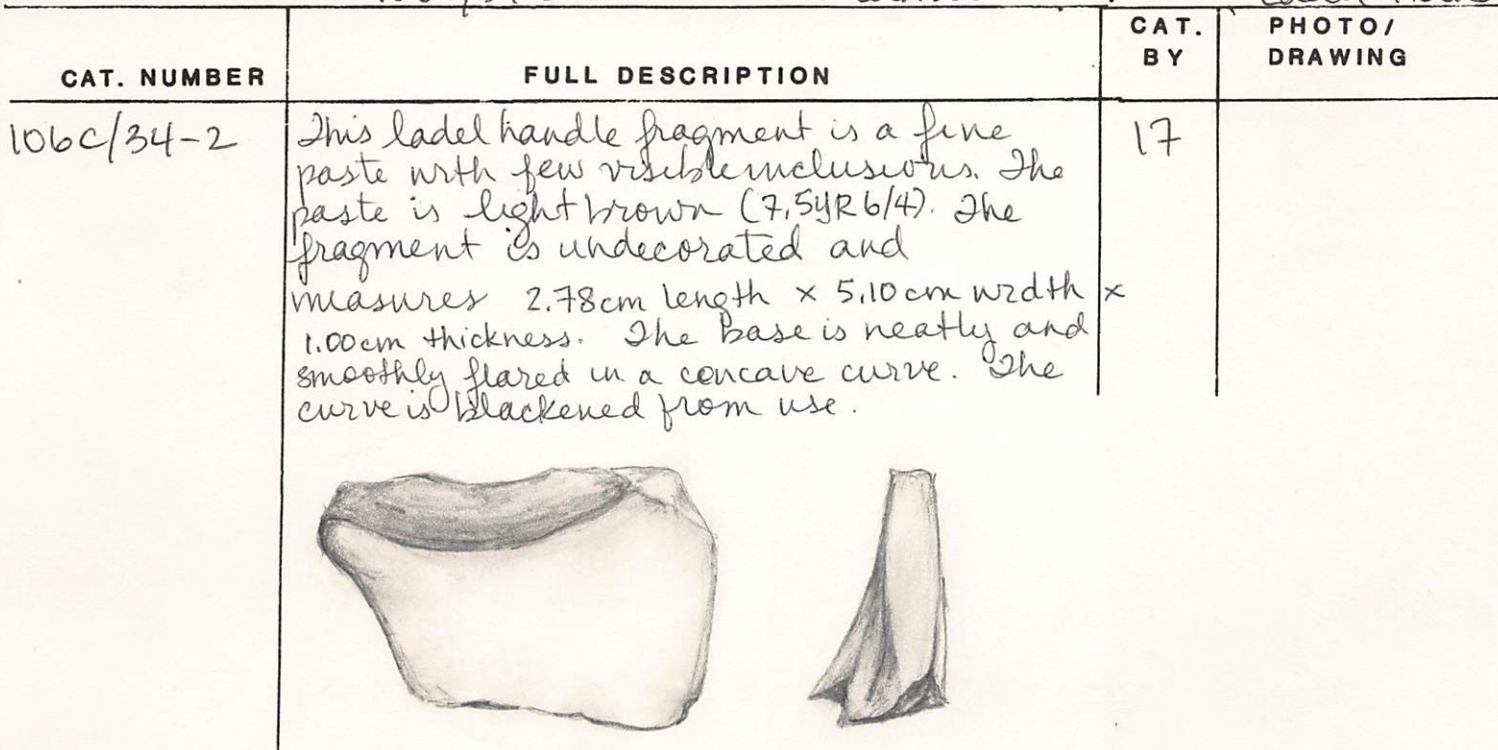 CAT. NUMBER
FULL DESCRIPTION
CAT. BY
PHOTO/ DRAWING
106C/34-2
This ladel handle fragment is a fine
paste with few visible inclusions. The
paste is light brown (7.5YR 6/4). The
fragment is undecorated and
measures 2.78cm length x 5.10cm width x
1.00cm thickness. The base is neatly and
smoothly flared in a concave curve. The
curve is blackened from use.
17